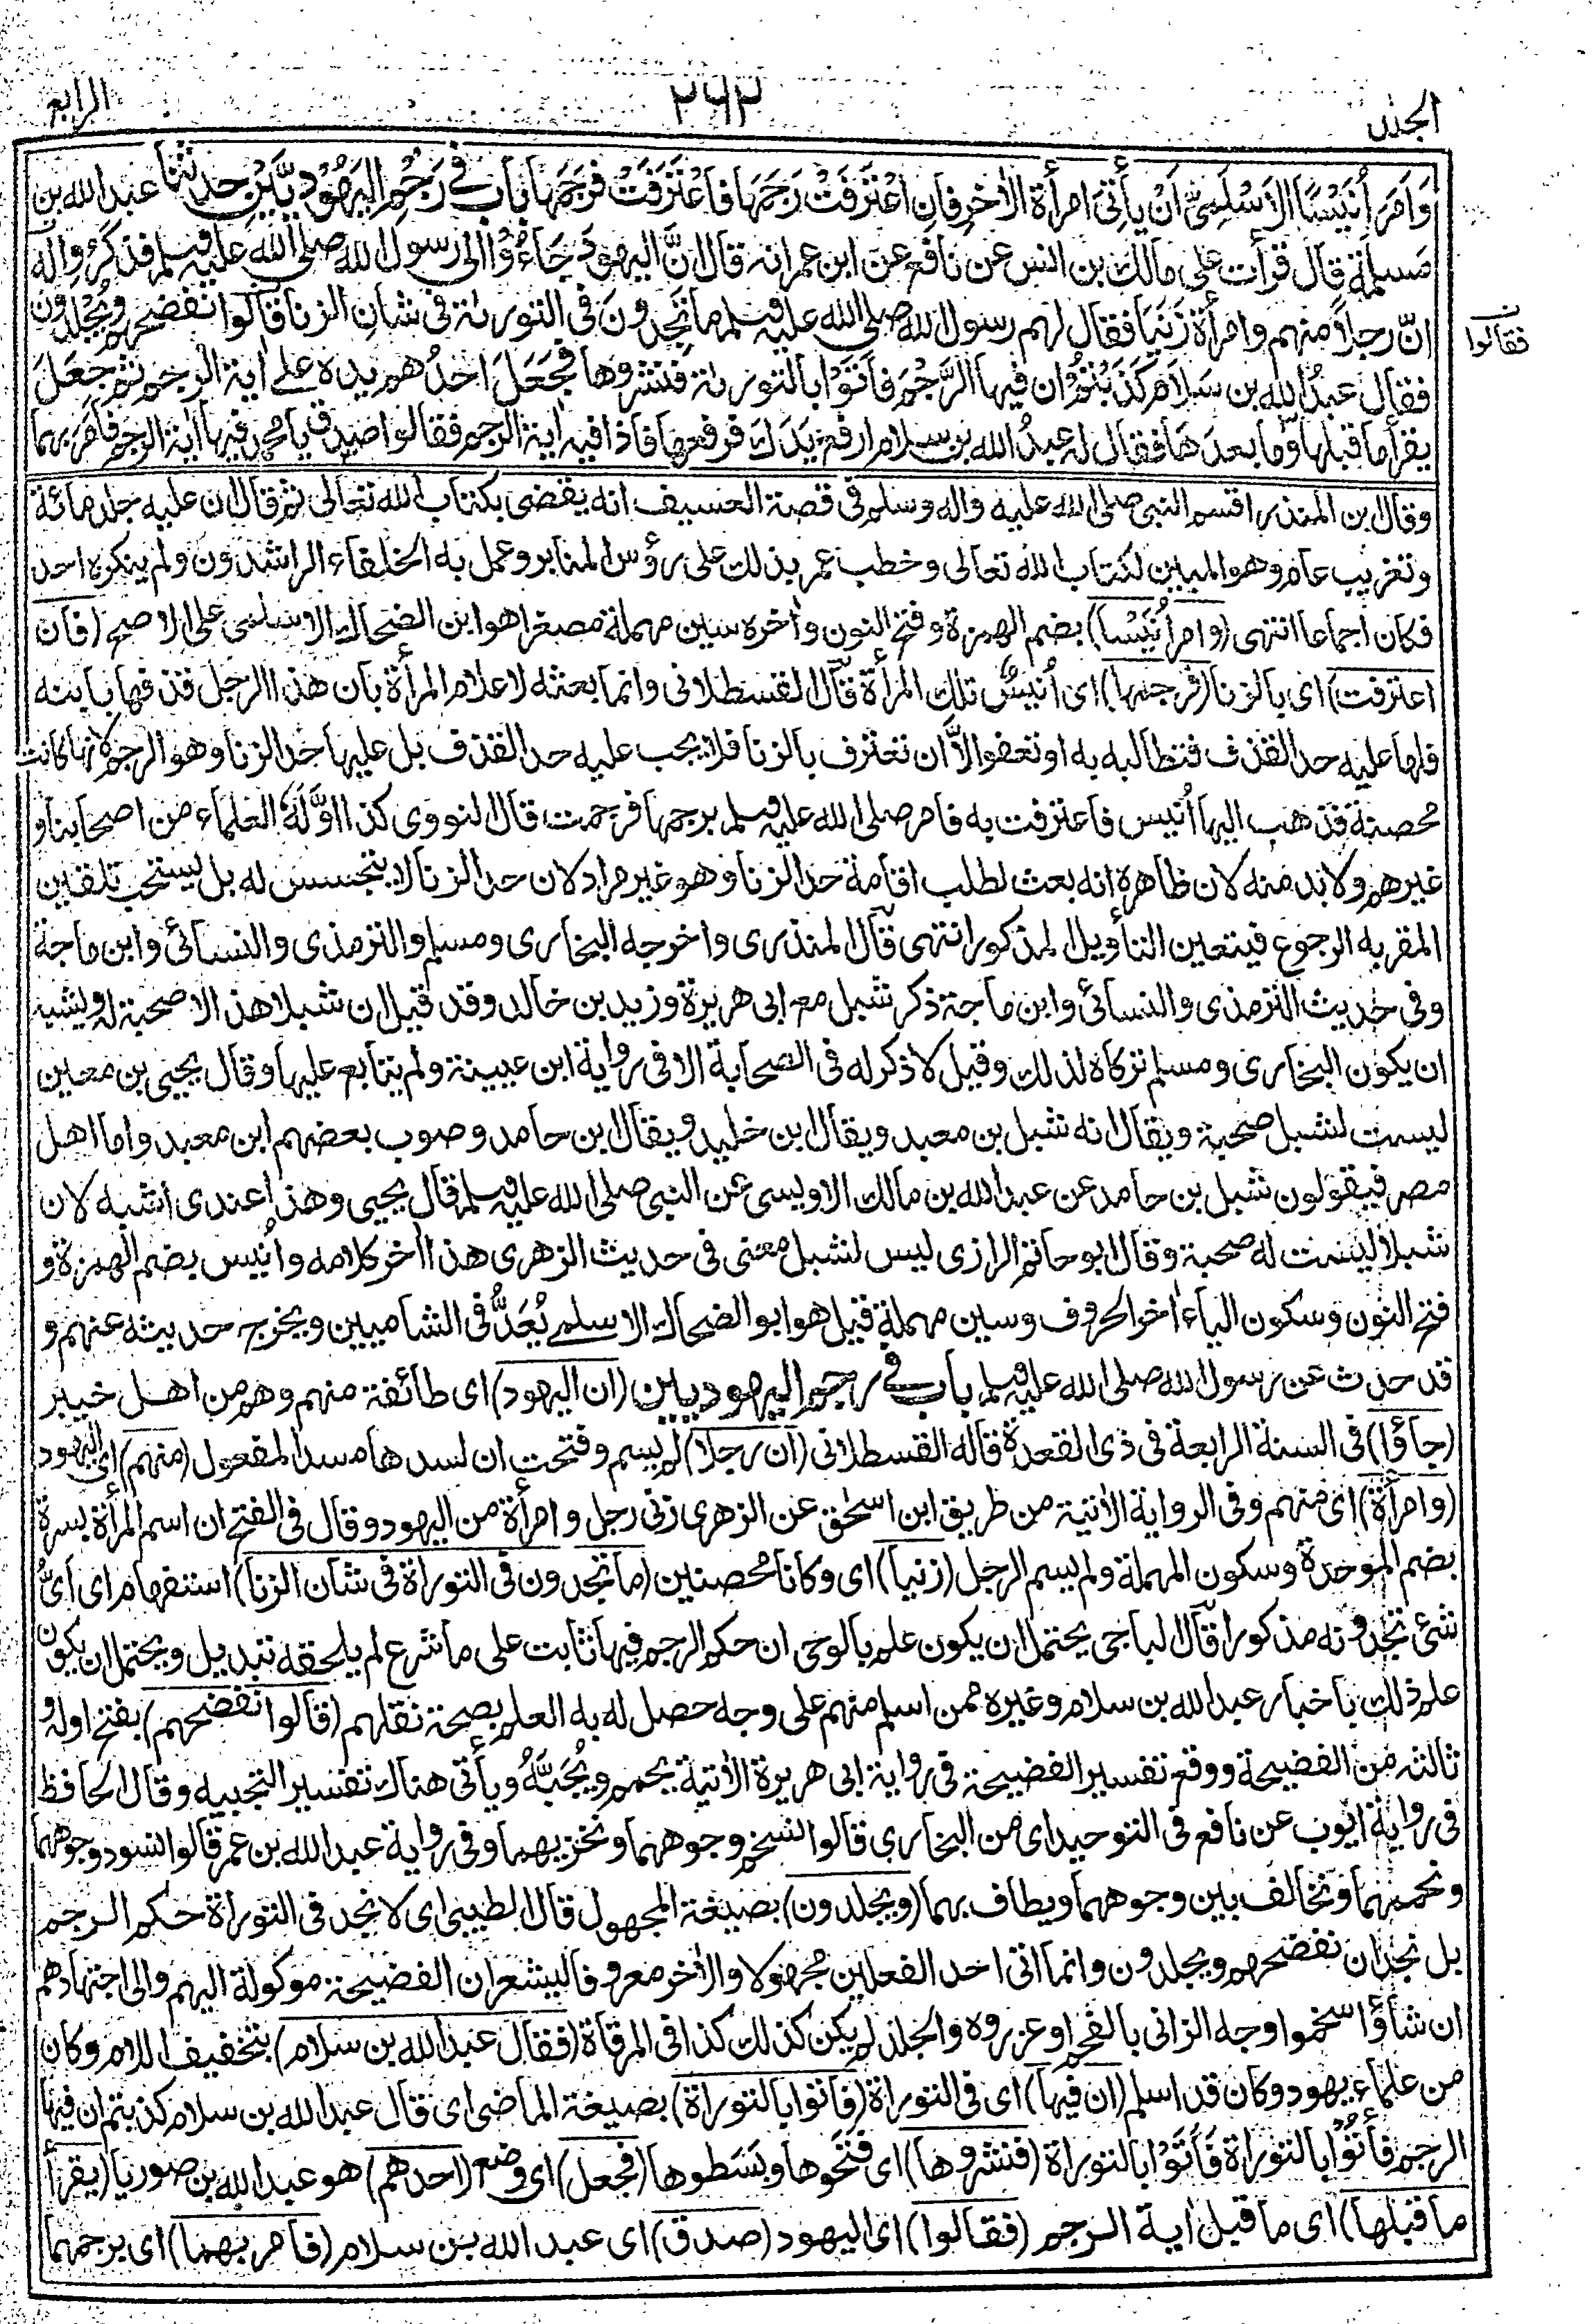 الجزء
٢٦٢
الرابع
وَاَمَرَ اُنَيْسًا الاَسْلَمِىَّ اَنْ يَأْتِىَ امرأةَ الاٰخرِ فَاِنِ اعْتَرَفَتْ رَجَمَهَا فَاعْتَرَفَتْ فَرَجَمَهَا باب فى رَجْمِ اليَهُوْدِيَّيْنِ حدثنا عبدالله بن
مسلمة قال قرأت على مالك بن انس عن نافع عن ابن عمر انه قال انَّ اليهودَ جَاءُوْا الى رسول الله صلى الله عليه وسلم فذكرُوا له
انّ رجلًا منهم وامرأةً زَنَيَا فقال لهم رسول الله صلى الله عليه وسلم ما تَجِدُوْنَ فى التورىٰة فى شانِ الزنا قالوا نفضحهم ويُجْلَدُون
فقالوا
فقال عبدُ الله بن سَلَام كَذَبْتُمْ ان فيها الرَّجْمَ فَاَتَوْا بالتورىٰة فنشروها فجَعَلَ احدُهم يده على اٰية الرجم ثم جَعَلَ
يقرأ ما قبلها وما بعدَها فقال له عبدُ الله بن سلام ارفع يَدَك فرفعها فاذا فيه اٰية الرجم فقالوا صدق يا محمد فيها اٰية الرجم فأمر بهما
وقال ابن المنذر اقسم النبى صلى الله عليه واله وسلم فى قصة العسيف انه يقضى بكتاب الله تعالى ثم قال ان عليه جلد مائة
وتغريب عام وهو المبين لكتاب الله تعالى وخطب عمر بذلك على رؤس المنابر وعمل به الخلفاء الراشدون ولم ينكره احد
فكان اجماعا انتهى (وامر اُنَيْسا) بضم الهمزة وفتح النون واٰخره سين مهملة مصغرا هو ابن الضحاك الاسلمى على الاصح (فان
اعترفت) اى بالزنا (فرجمها) اى اُنيسٌ تلك المرأة قال القسطلانى وانما بعثه لاعلام المرأة بان هذا الرجل قذفها بابنه
فلها عليه حد القذف فتطالبه به او تعفو الَّا ان تعترف بالزنا فلا يجب عليه حد القذف بل عليها حد الزنا وهو الرجم لانها كانت
محصنة فذهب اليها اُنيس فاعترفت به فامر صلى الله عليه وسلم برجمها فرجمت قال النووى كذا اوَّلَهُ العلماء من اصحابنا و
غيرهم ولا بد منه لان ظاهره انه بعث لطلب اقامة حد الزنا وهو غير مراد لان حد الزنا لا يتجسس له بل يستحب تلقين
المقر به الرجوع فيتعين التأويل المذكور انتهى قال المنذرى واخرجه البخارى ومسلم والترمذى والنسائى وابن ماجة
وفى حديث الترمذى والنسائى وابن ماجة ذكر شبل مع ابى هريرة وزيد بن خالد وقد قيل ان شبلا هذا لا صحبة له ويشبه
ان يكون البخارى ومسلم تركاه لذلك وقيل لا ذكر له فى الصحابة الا فى رواية ابن عيينة ولم يتابع عليها وقال يحيى بن معين
ليست لشبل صحبة ويقال انه شبل بن معبد ويقال ابن خليد ويقال ابن حامد وصوب بعضهم ابن معبد واما اهل
مصر فيقولون شبل بن حامد عن عبدالله بن مالك الاويسى عن النبى صلى الله عليه وسلم قال يحيى وهذا عندى اشبه لان
شبلا ليست له صحبة وقال ابو حاتم الرازى ليس لشبل معنى فى حديث الزهرى هذا اٰخر كلامه واُنيس بضم الهمزة و
فتح النون وسكون الياء اٰخر الحروف وسين مهملة قيل هو ابو الضحاك الاسلمى يُعَدُّ فى الشاميين ويخرج حديثه عنهم و
قد حدث عن رسول الله صلى الله عليه وسلم باب فى رجم اليهوديين (ان اليهود) اى طائفة منهم وهم من اهل خيبر
(جاؤا) فى السنة الرابعة فى ذى القعدة قاله القسطلانى (ان رجلا) لم يسم وفتحت ان لسدها مسد المفعول (منهم) اى اليهود
(وامرأة) اى منهم وفى الرواية الاٰتية من طريق ابن اسحٰق عن الزهرى زنى رجل وامرأة من اليهود وقال فى الفتح ان اسم المرأة بسرة
بضم الموحدة وسكون المهملة ولم يسم الرجل (زنيا) اى وكانا محصنين (ما تجدون فى التوراة فى شان الزنا) استفهام اى اىُّ
شئ تجدونه مذكورا قال الباجى يحتمل ان يكون علم بالوحى ان حكم الرجم فيها ثابت على ما شرع لم يلحقه تبديل ويحتمل ان يكون
علم ذلك باخبار عبدالله بن سلام وغيره ممن اسلم منهم على وجه حصل له به العلم بصحة نقلهم (قالوا نفضحهم) بفتح اوله و
ثالثه من الفضيحة ووقع تفسير الفضيحة فى رواية ابى هريرة الاٰتية يحمم ويُجَبَّهُ ويأتى هناك تفسير التجبيه وقال الحافظ
فى رواية ايوب عن نافع فى التوحيد اى من البخارى قالوا نسخم وجوههما ونخزيهما وفى رواية عبدالله بن عمر قالوا نسود وجوههما
ونحممهما ونخالف بين وجوههما ويطاف بهما (ويجلدون) بصيغة المجهول قال الطيبى اى لا نجد فى التوراة حكم الرجم
بل نجد ان نفضحهم ويجلدون وانما اتى احد الفعلين مجهولا والاٰخر معروفا ليشعر ان الفضيحة موكولة اليهم والى اجتهادهم
ان شاؤا سخموا وجه الزانى بالفحم او عزروه والجلد لم يكن كذلك كذا فى المرقاة (فقال عبدالله بن سلام) بتخفيف اللام وكان
من علماء يهود وكان قد اسلم (ان فيها) اى فى التوراة (فاتوا بالتوراة) بصيغة الماضى اى قال عبدالله بن سلام كذبتم ان فيها
الرجم فأتُوْا بالتوراة فَاَتَوْا بالتوراة (فنشروها) اى فَتَحُوها وبَسَطوها (فجعل) اى وضع (احدهم) هو عبدالله بن صوريا (يقرأ
ما قبلها) اى ما قبل اٰية الرجم (فقالوا) اى اليهود (صدق) اى عبدالله بن سلام (فامر بهما) اى برجمهما